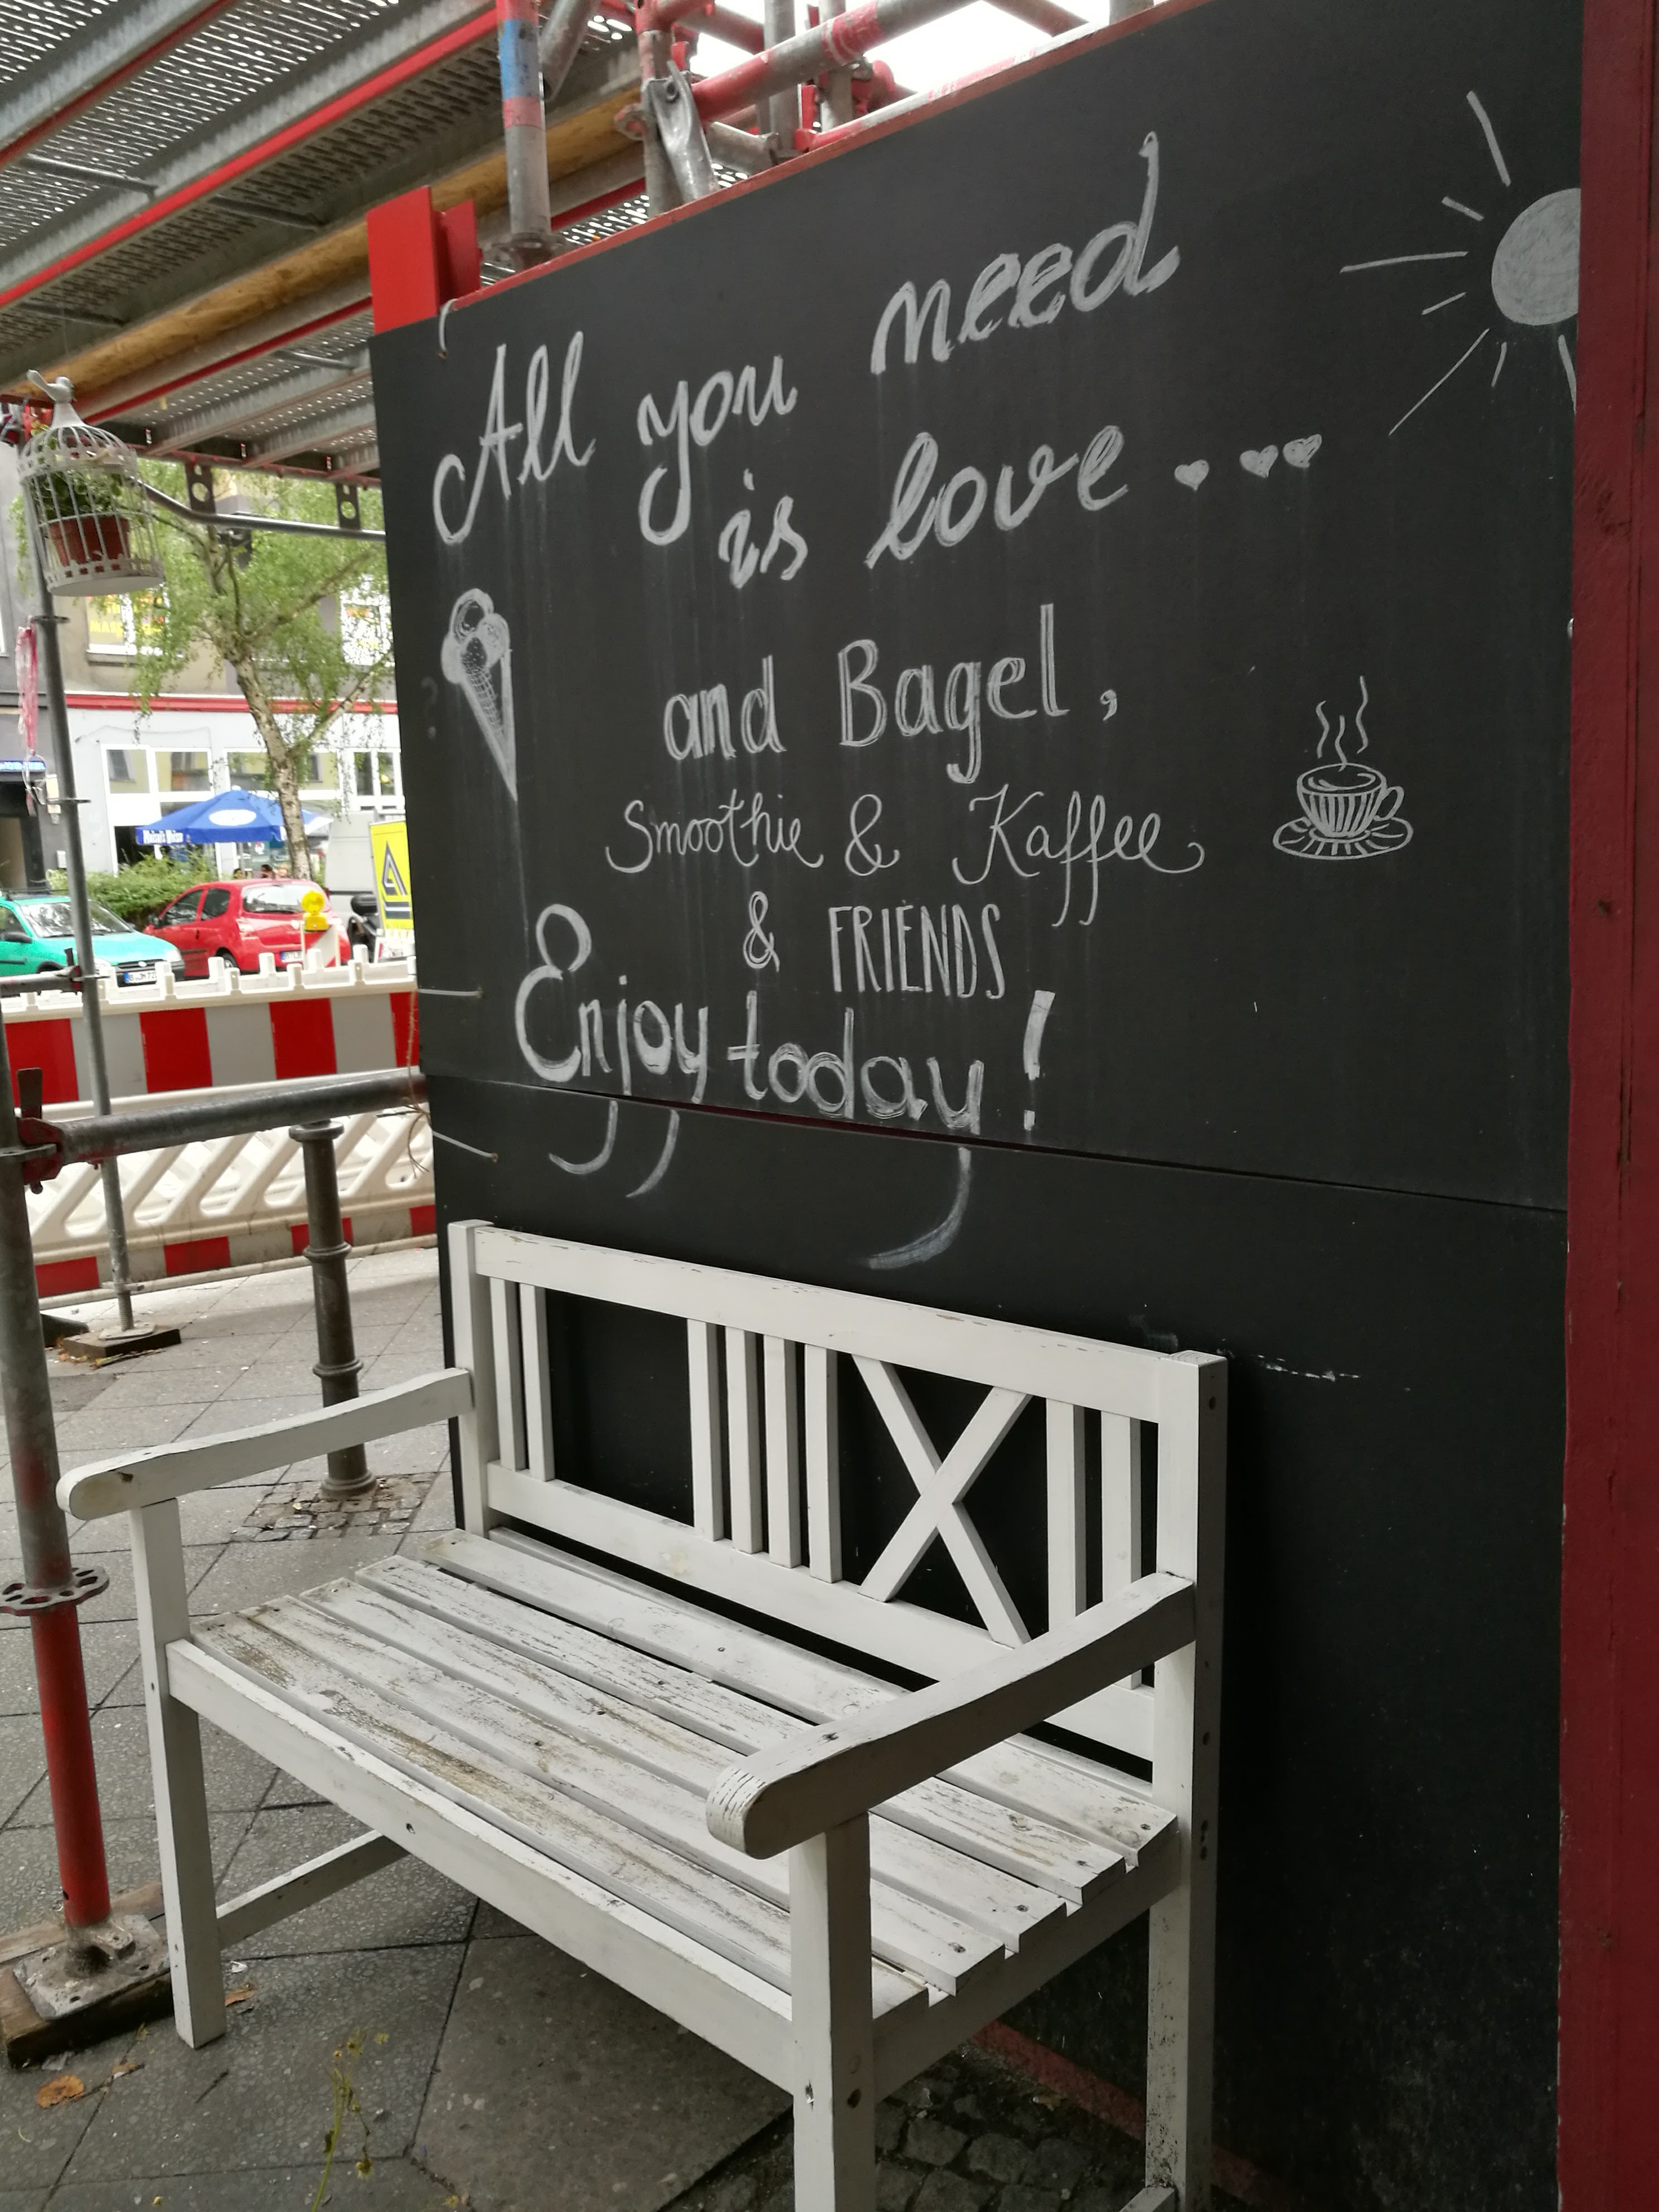 All you need
is love...
and Bagel,
Smoothie & Kaffee
& FRIENDS
Enjoy today!